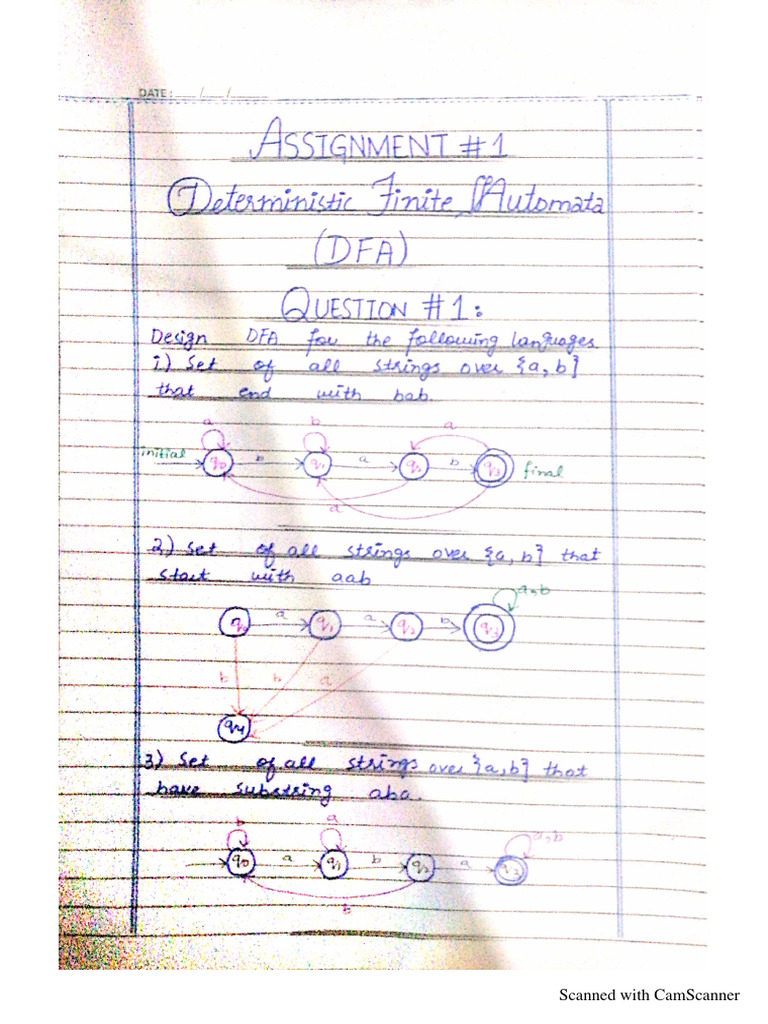 DATE: __/__/__
ASSIGNMENT #1
Deterministic Finite Automata
(DFA)
QUESTION #1:
Design DFA for the following languages.
1.) Set of all strings over {a, b}
that end with bab.
a b a
initial q0 b q1 a q2 b q3 final
a
2) Set of all strings over {a, b} that
start with aab
a,b
q0 a q1 a q2 b q3
b b a
q4
3) Set of all strings over {a,b} that
have substring aba.
b a a,b
q0 a q1 b q2 a q3
b
Scanned with CamScanner